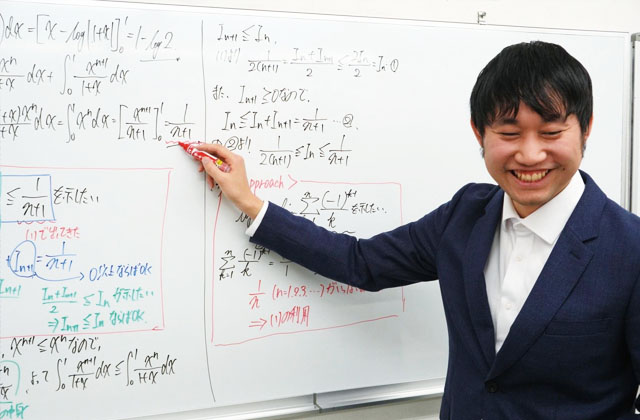 )dx = [x - log|1+x|]₀¹ = 1 - log 2.
xⁿ/1+x dx + ∫₀¹ xⁿ⁺¹/1+x dx
+x)xⁿ/+x dx = ∫₀¹ xⁿ dx = [xⁿ⁺¹/n+1]₀¹ = 1/n+1
≦ 1/n+1 を示したい
(1)で出てきた
+ Iₙ₊₁ = 1/n+1
Iₙ+Iₙ₊₁/2 ≦ Iₙ が示したい
⇒ Iₙ₊₁ ≦ Iₙ ならばOK
xⁿ⁺¹ ≦ xⁿ なので,
よって ∫₀¹ xⁿ⁺¹/1+x dx ≦ ∫₀¹ xⁿ/1+x dx
Iₙ₊₁ ≦ Iₙ.
(1)より 1/2(n+1) = Iₙ+Iₙ₊₁/2 ≦ 2Iₙ/2 = Iₙ ①
また, Iₙ₊₁ ≧ 0なので,
Iₙ ≦ Iₙ + Iₙ₊₁ = 1/n+1 … ②
②より! 1/2(n+1) ≦ Iₙ ≦ 1/n+1
pproach >
Σ (-1)ᵏ⁺¹/k を示したい.
Σ (-1)ᵏ⁺¹/k = 1/1
1/n (n=1,2,3,…)
⇒ (1)の利用